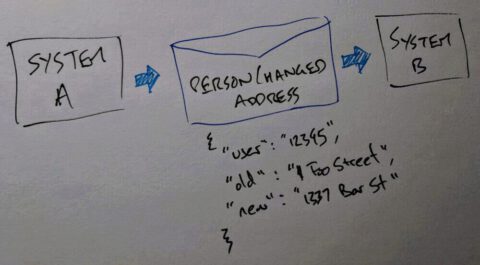 SYSTEM
A
PERSON CHANGED
ADDRESS
SYSTEM
B
{
"user": "12345",
"old": "1 Foo Street",
"new": "1337 Bar St"
}